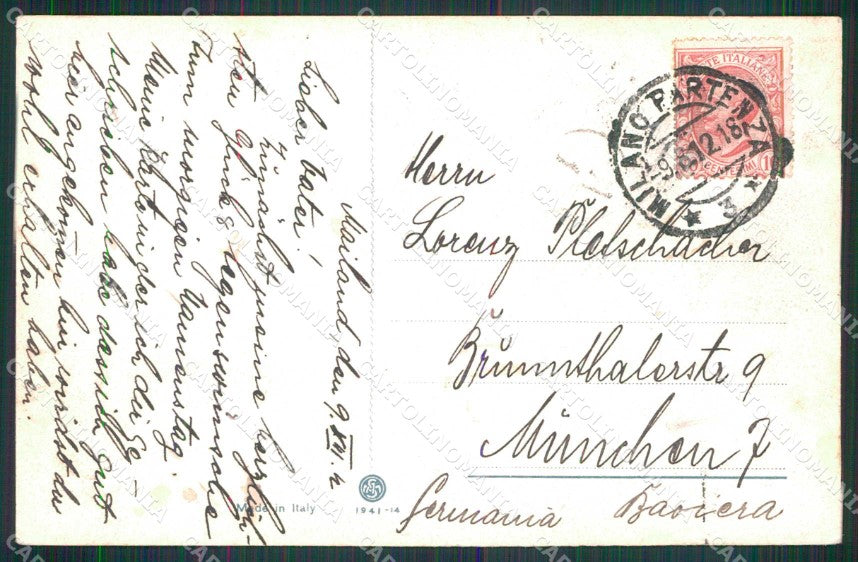 Mailand, den 9. VIII. 12
Lieber Vater!
Zunächst meine herzlich-
sten Glück & Segenswünsche
zum morgigen Namenstag.
Meine Karte in der ich die ge-
schrieben habe dass ich gut
hier angekommen bin wirst du
wohl erhalten haben.
Herrn
Lorenz Pletschacher
Brunnthalerstr 9
München 7
Germania Baviera
MILANO PARTENZA
9.8.12.18
3
POSTE ITALIANE
Made in Italy
1941-14
CARTOLINOMANIA